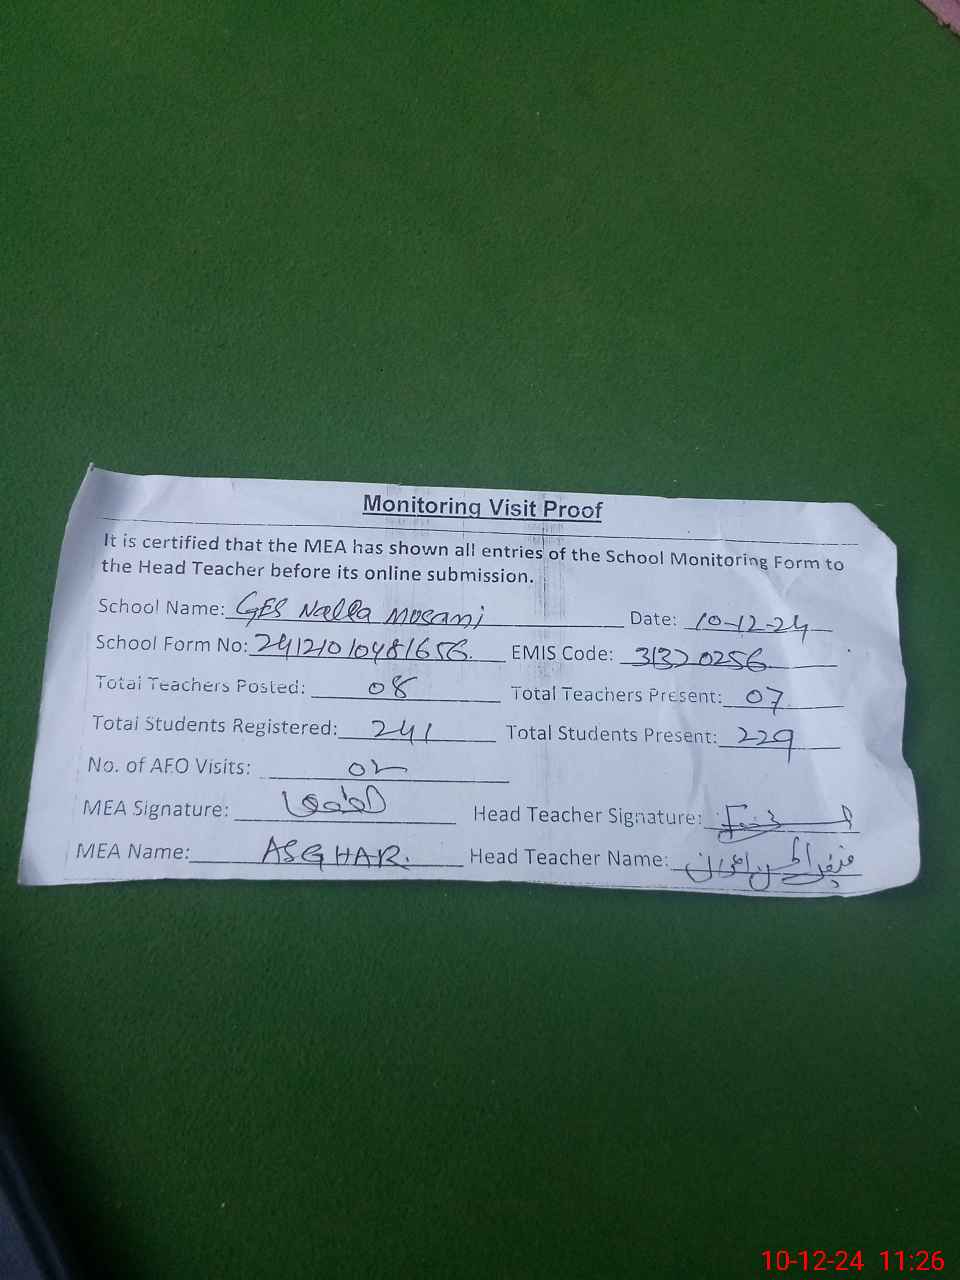 Monitoring Visit Proof
It is certified that the MEA has shown all entries of the School Monitoring Form to
the Head Teacher before its online submission.
School Name: GES Nalla Musani Date: 10-12-24
School Form No: 24121010481656 EMIS Code: 31320256
Total Teachers Posted: 08 Total Teachers Present: 07
Total Students Registered: 241 Total Students Present: 229
No. of AEO Visits: 02
MEA Signature: Head Teacher Signature:
MEA Name: ASGHAR. Head Teacher Name:
10-12-24 11:26